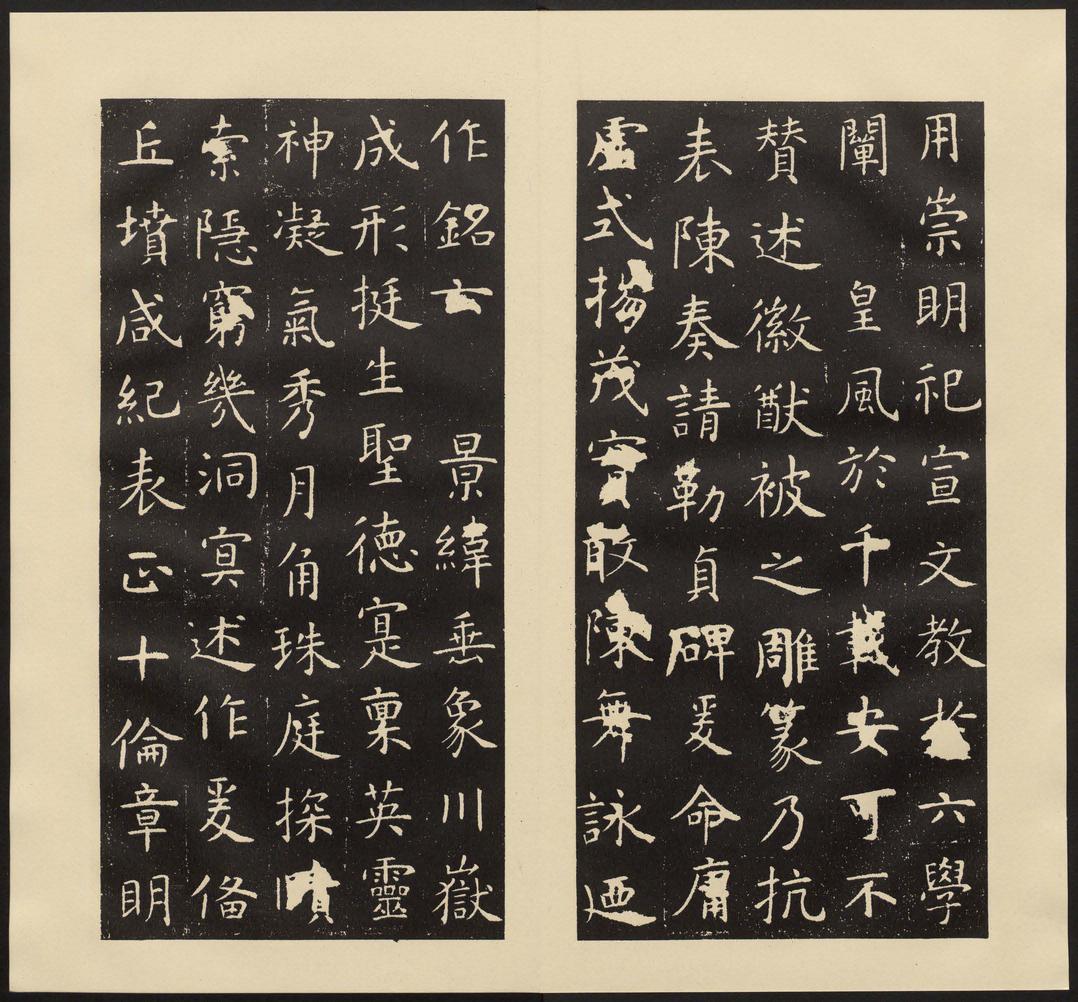 用崇明祀宣文教於六學
闡皇風於千載安可不
贊述徽猷被之雕篆乃抗
表陳奏請勒貞碑爰命庸
虛式揚茂實敢陳舞詠迺
作銘云景緯垂象川嶽
成形挺生聖德寔稟英靈
神凝氣秀月角珠庭探賾
索隱窮幾洞冥述作爰俻
丘墳咸紀表正十倫章明